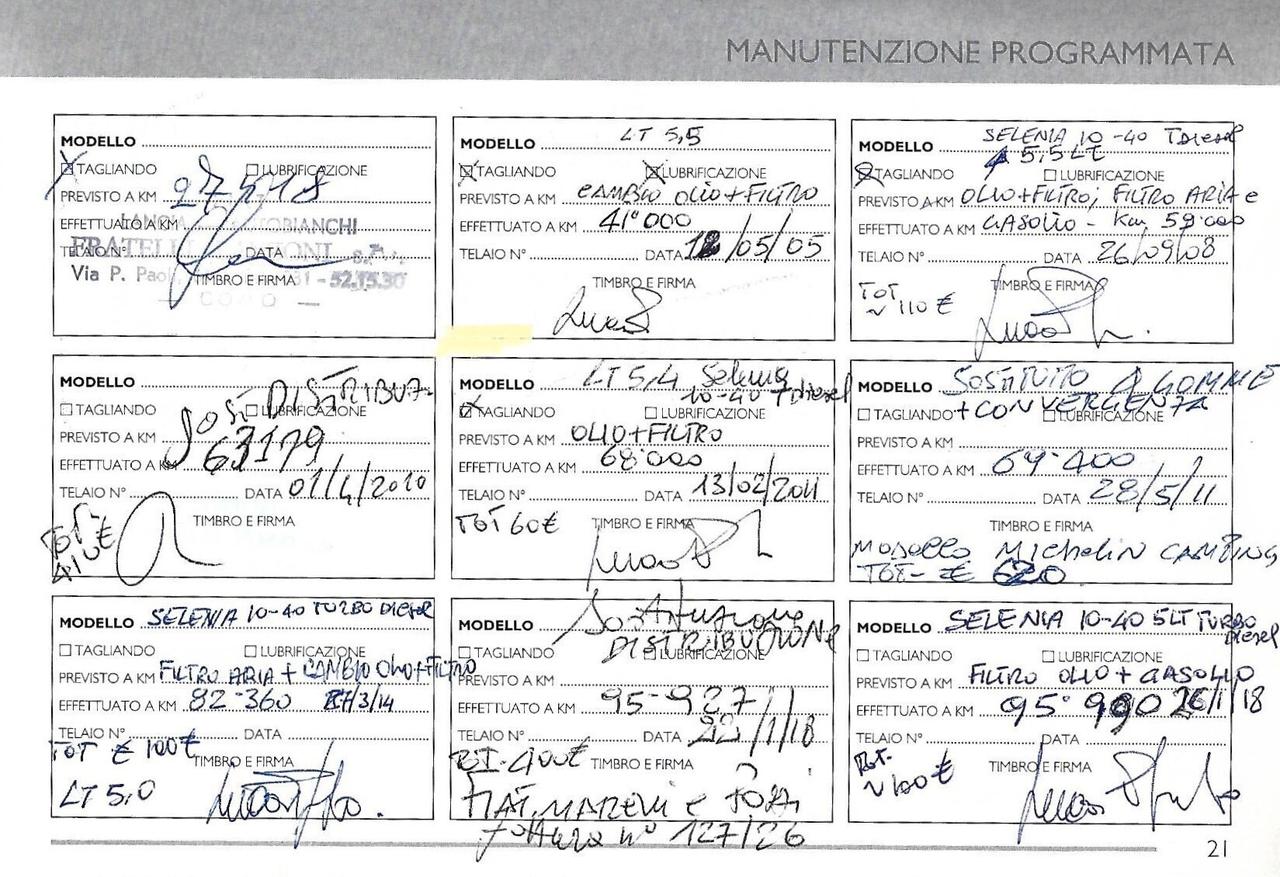 MANUTENZIONE PROGRAMMATA
MODELLO
TAGLIANDO LUBRIFICAZIONE
PREVISTO A KM 27518
EFFETTUATO A KM
LANCIA AUTOBIANCHI
FRATELLI
TELAIO N° DATA
Via P. Paoli 31 - 52.15.30
TIMBRO E FIRMA
COMO
MODELLO LT 5,5
TAGLIANDO LUBRIFICAZIONE
PREVISTO A KM CAMBIO OLIO+FILTRO
EFFETTUATO A KM 41°000
TELAIO N° DATA 12/05/05
TIMBRO E FIRMA
MODELLO SELENIA 10-40 TDiesel
5,5 LT
TAGLIANDO LUBRIFICAZIONE
PREVISTO A KM OLIO+FILTRO; FILTRO ARIA e
EFFETTUATO A KM GASOLIO - Km. 59°000
TELAIO N° DATA 26/09/08
TIMBRO E FIRMA
TOT ~ 110 €
MODELLO
SOST. DISTRIBUZ.
TAGLIANDO LUBRIFICAZIONE
PREVISTO A KM
63179
EFFETTUATO A KM
TELAIO N° DATA 01/4/2010
TIMBRO E FIRMA
TOT. 410€
MODELLO LT 5,4 Selenia
10-40 TDiesel
TAGLIANDO LUBRIFICAZIONE
PREVISTO A KM OLIO+FILTRO
EFFETTUATO A KM 68°000
TELAIO N° DATA 13/02/2011
TOT 60€ TIMBRO E FIRMA
MODELLO SOSTITUITO 4 GOMME
TAGLIANDO + CONVERGENZA LUBRIFICAZIONE
PREVISTO A KM
EFFETTUATO A KM 69°400
TELAIO N° DATA 28/5/11
TIMBRO E FIRMA
MODELLO Michelin CAMPING
TOT- € 620
MODELLO SELENIA 10-40 TURBO DIESEL
TAGLIANDO LUBRIFICAZIONE
PREVISTO A KM FILTRO ARIA + CAMBIO OLIO+FILTRO
EFFETTUATO A KM 82°360 /3/14
TELAIO N° DATA
TOT € 100€ TIMBRO E FIRMA
LT 5,0
Sostituzione
MODELLO DISTRIBUZIONE
TAGLIANDO LUBRIFICAZIONE
PREVISTO A KM
EFFETTUATO A KM 95-927
TELAIO N° DATA 22/1/18
TOT. 400€ TIMBRO E FIRMA
FIAT MARENI e
fattura n° 127/26
MODELLO SELENIA 10-40 5LT TURBO
Diesel
TAGLIANDO LUBRIFICAZIONE
PREVISTO A KM FILTRO OLIO + GASOLIO
EFFETTUATO A KM 95° 990 26/1/18
TELAIO N° DATA
TOT. ~ 100 € TIMBRO E FIRMA
21